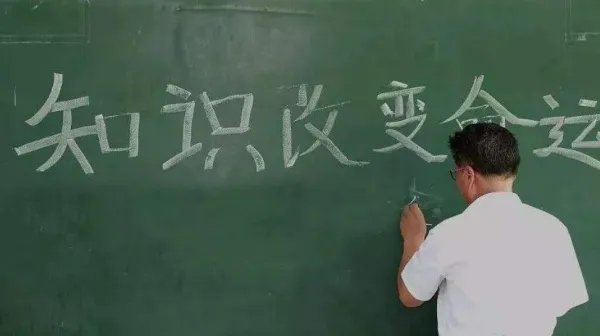 知识改变命运